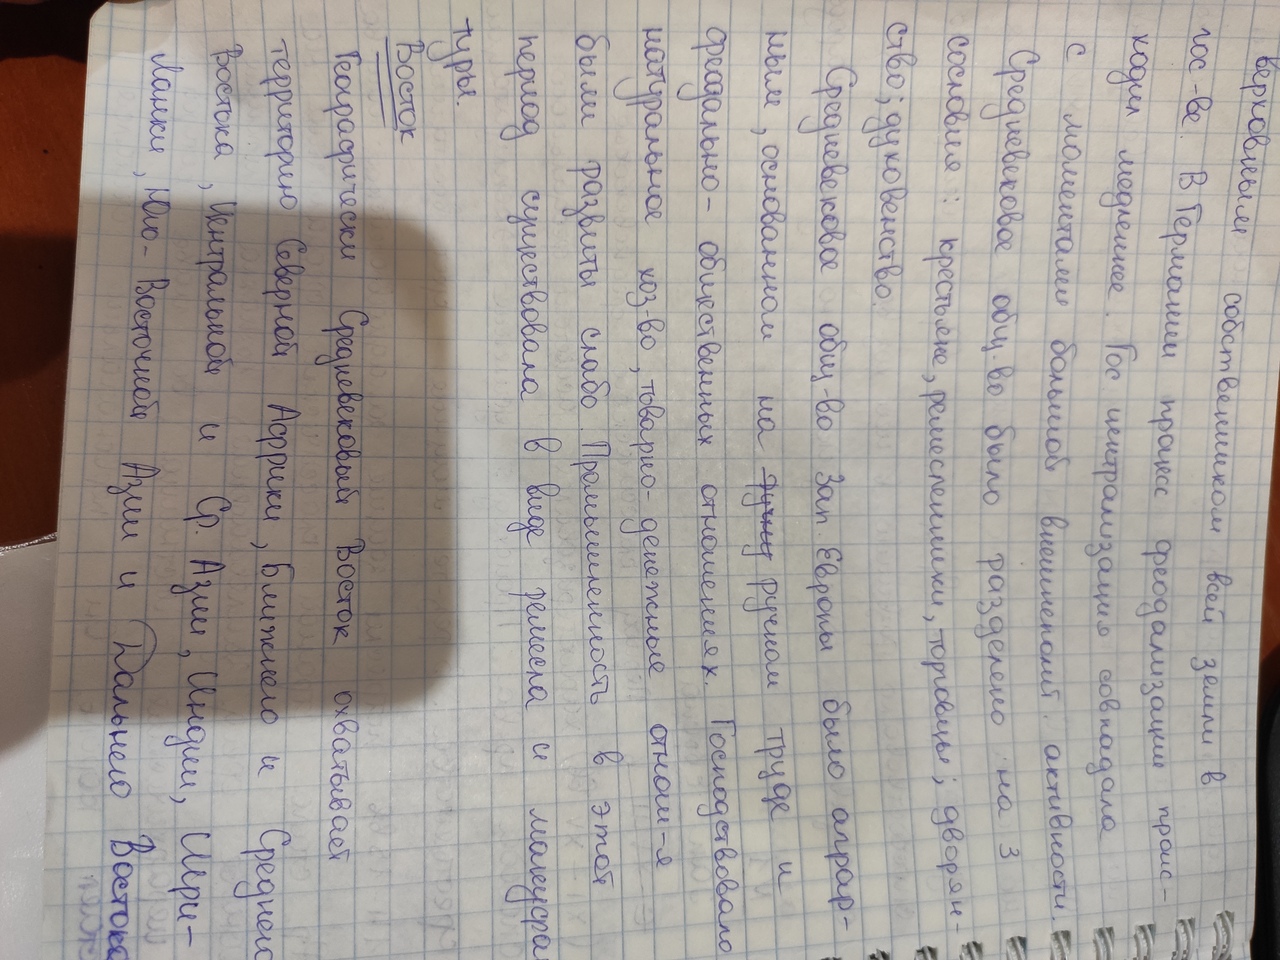 верховным собственником всей земли в
гос-ве. В Германии процесс феодализации проис-
ходил медленнее. Гос централизация совпадала
с моментами большой внешнеполит. активности.
Средневековое общ-во было разделено на 3
сословия: крестьяне, ремесленники, торговцы; дворян-
ство; духовенство.
Средневековое общ-во Зап. Европы было аграр-
ным, основанном на ручном труде и
феодально-общественных отношениях. Господствовало
натуральное хоз-во, товарно-денежные отнош-я
были развиты слабо. Промышленность в этот
период существовала в виде ремесла и мануфра
туры.
Восток
Географически Средневековый Восток охватывает
территорию Северной Африки, Ближнего и Среднего
Востока, Центральной и Ср. Азии, Индии, Шри-
Ланки, Юго-Восточной Азии и Дальнего Востока